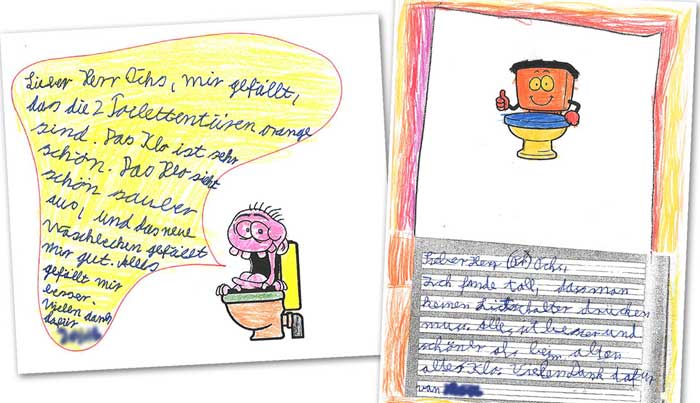 Lieber Herr Ochs, mir gefällt,
das die 2 Toilettentüren orange
sind. Das Klo ist sehr
schön. Das Klo sieht
schön sauber
aus, und das neue
Waschbecken gefällt
mir gut. Alles
gefällt mir
besser.
Vielen dank
dafür
Lieber Herr Ochs,
Ich finde toll, dass man
keinen Lichtschalter drücken
muss. Alles ist besser und
schöner als beim alten
alten Klo. Vielen Dank dafür
von